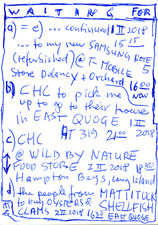 WAITING FOR
a) = e) ... continued 1 II 2018
... to my new SAMSUNG NOTE 5
(refurbished) @ T-MOBILE
Store Delancy + Orchard
b) CHC to pick me
up to go to their house
in EAST QUOGE
AT 319 2018
c) CHC
@ WILD BY NATURE
FOOD STORE 2 II 2018
Hampton Bays, Long Island
d) the people from MATTITUCK
to buy OYSTERS SHELLFISH
CLAMS 2 II 2018 EAST QUOGE